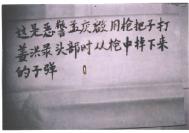 这是恶警孟庆敏用枪把子打
姜洪录头部时从枪中掉下来
的子弹